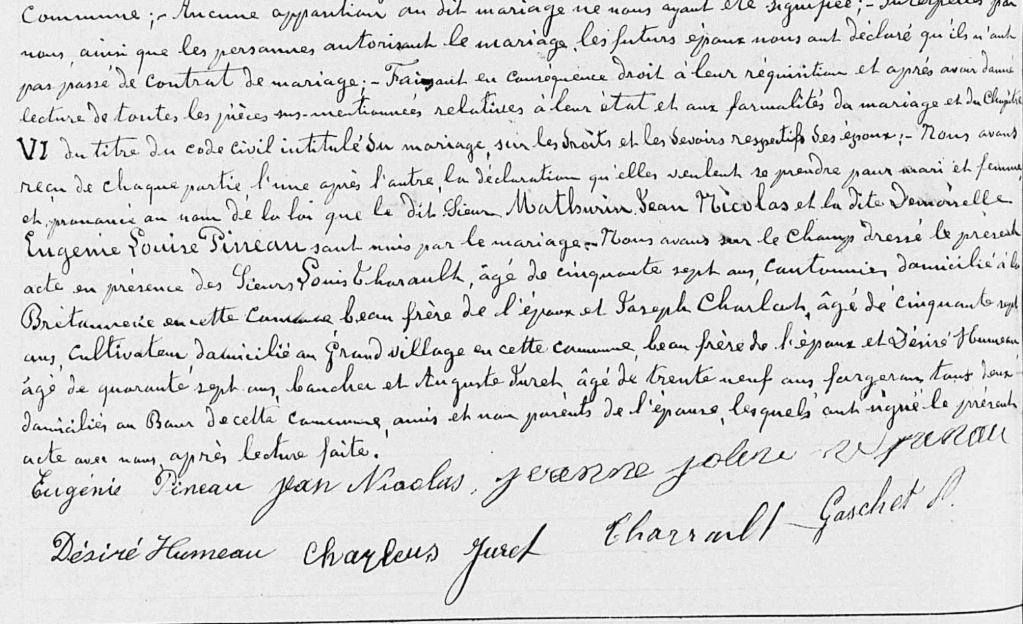 Commune ;- Aucune opposition au dit mariage ne nous ayant été signifiée ;- Interpellés par
nous, ainsi que les personnes autorisant le mariage, les futurs époux nous ont déclaré qu'ils n'ont
pas passé de contrat de mariage ;- Faisant en conséquence droit à leur réquisition et après avoir donné
lecture de toutes les pièces sus-mentionnées relatives à leur état et aux formalités du mariage et du Chapitre
VI du titre du code civil intitulé du mariage, sur les droits et les devoirs respectifs des époux ;- Nous avons
reçu de chaque partie l'une après l'autre, la déclaration qu'elles veulent se prendre pour mari et femme,
et prononcé au nom de la loi que le dit Sieur Mathurin Jean Nicolas et la dite Demoiselle
Eugenie Louise Pineau sont unis par le mariage.- Nous avons sur le champ dressé le présent
acte en présence des Sieurs Louis Tharault, âgé de cinquante sept ans, cantonnier, domicilié à la
en cette commune, beau frère de l'époux et Joseph âgé de cinquante sept
ans, cultivateur domicilié au Grand village en cette commune, beau frère de l'époux et Désiré Humeau
âgé de quarante sept ans, boucher et Auguste Juret, âgé de trente neuf ans forgeron, tous deux
domiciliés au Bourg de cette commune, amis et non parents de l'épouse, lesquels ont signé le présent
acte avec nous, après lecture faite.
Eugénie Pineau Jean Nicolas, Jeanne
Désiré Humeau Juret Gaschet